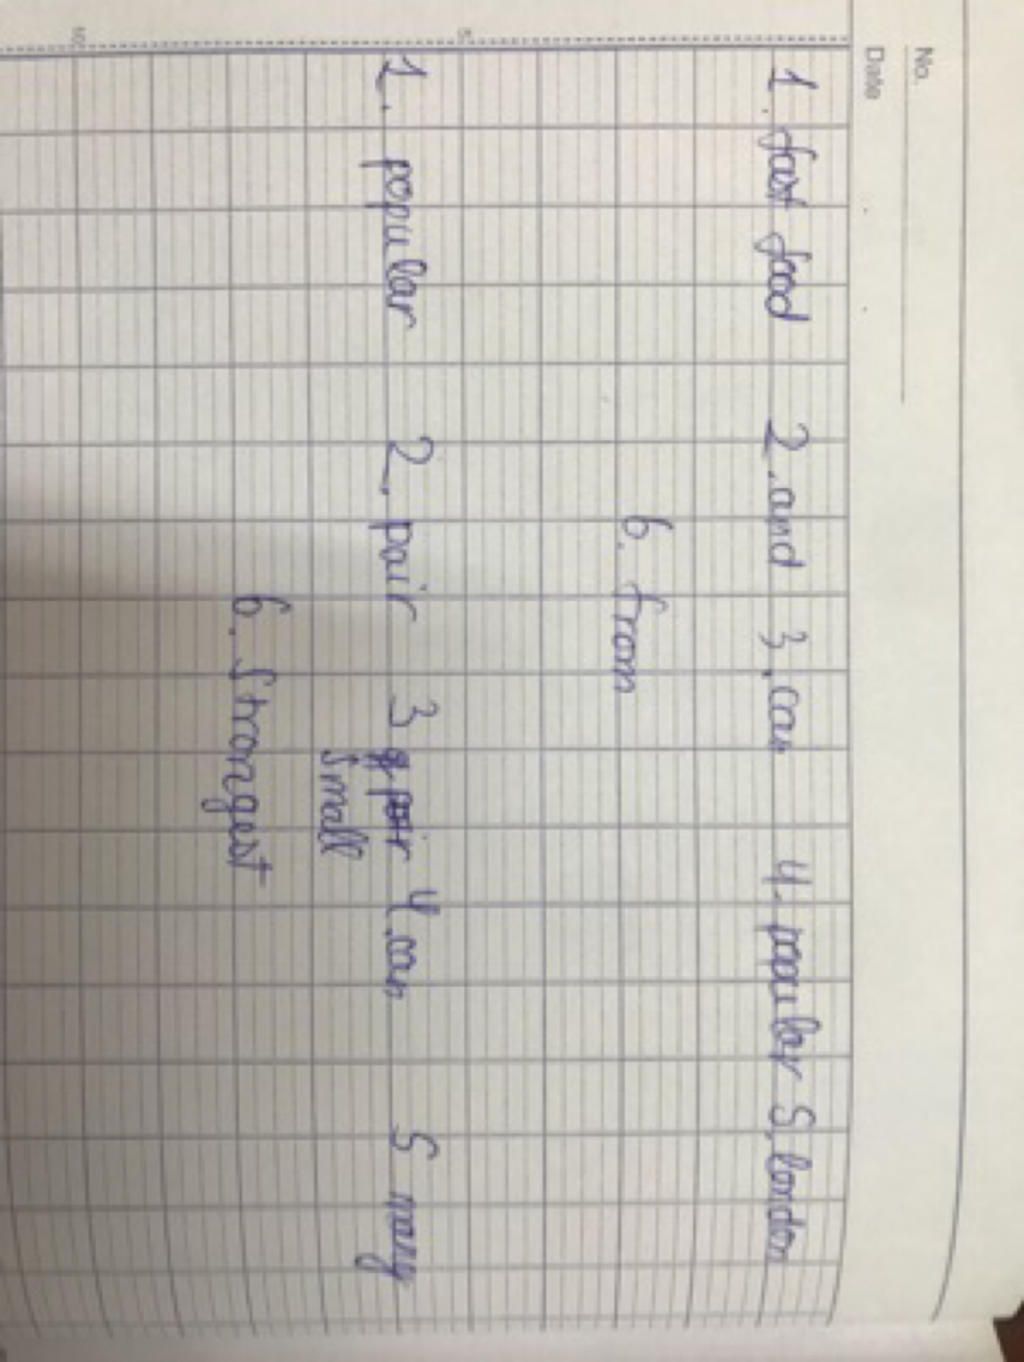 No.
Date
1. fast food 2. and 3. can 4. popular 5. london
6. from
5
1. popular 2. pair 3 pair 4. can 5 many
small
6. strongest
10